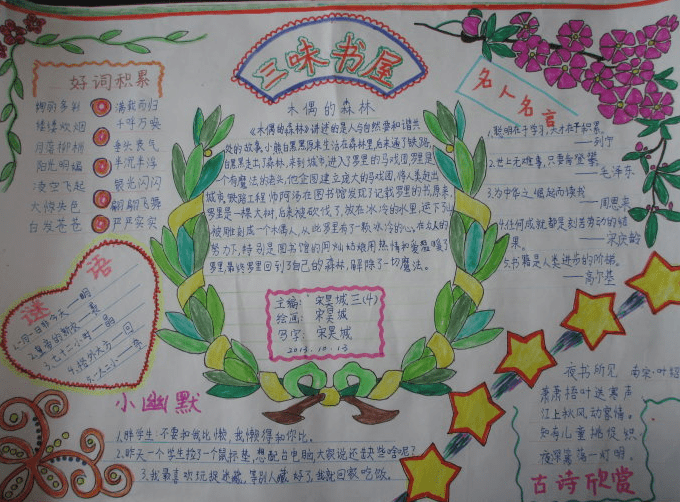 三味书屋
好词积累
婀娜多姿 满载而归
缕缕炊烟 千呼万唤
月落柳梢 垂头丧气
阳光明媚 半沉半浮
凌空飞起 银光闪闪
大惊失色 翩翩飞舞
白发苍苍 严严实实
木偶的森林
《木偶的森林》讲述的是人与自然要和谐共
处的故事。小熊白黑黑原来生活在森林里,后来通了铁路,
白黑黑走出了森林,来到城市,进入了罗里的马戏团,罗里是
个有魔法的老头,他企图建立庞大的马戏团,将人类赶出
城市,铁路工程师阿汤在图书馆发现了记载罗里的书,原来
罗里是一棵大树,后来被砍伐了,放在冰冷的水里,运下
被雕刻成一个木偶人,从此罗里有了一颗冰冷的心,在众人的
努力下,特别是图书馆的阿灿姑娘用热情和爱温暖了
罗里,最终罗里回到了自己的森林,解除了一切魔法。
主编: 宋昊城 三(4)
绘画: 宋昊城
写字: 宋昊城
2013.10.13
名人名言
1.聪明在于学习,天才在于积累。
——列宁
2.世上无难事,只要肯登攀。
——毛泽东
3.为中华之崛起而读书
——周恩来
4.任何成就都是刻苦劳动的结
果。 ——宋庆龄
5.书籍是人类进步的阶梯。
——高尔基
谜语
1.一日非今天——明
3.七十二小时——晶
4.格外大方——回
小幽默
1.胖学生:不要和我比懒,我懒得和你比。
2.昨天一个学生捡了个鼠标垫,想配台电脑,大家说还差些啥呢?
3.我最喜欢玩捉迷藏,等别人藏好了,我就回家吃饭。
夜书所见 南宋·叶绍
萧萧梧叶送寒声
江上秋风动客情。
知有儿童挑促织
夜深篱落一灯明。
古诗欣赏